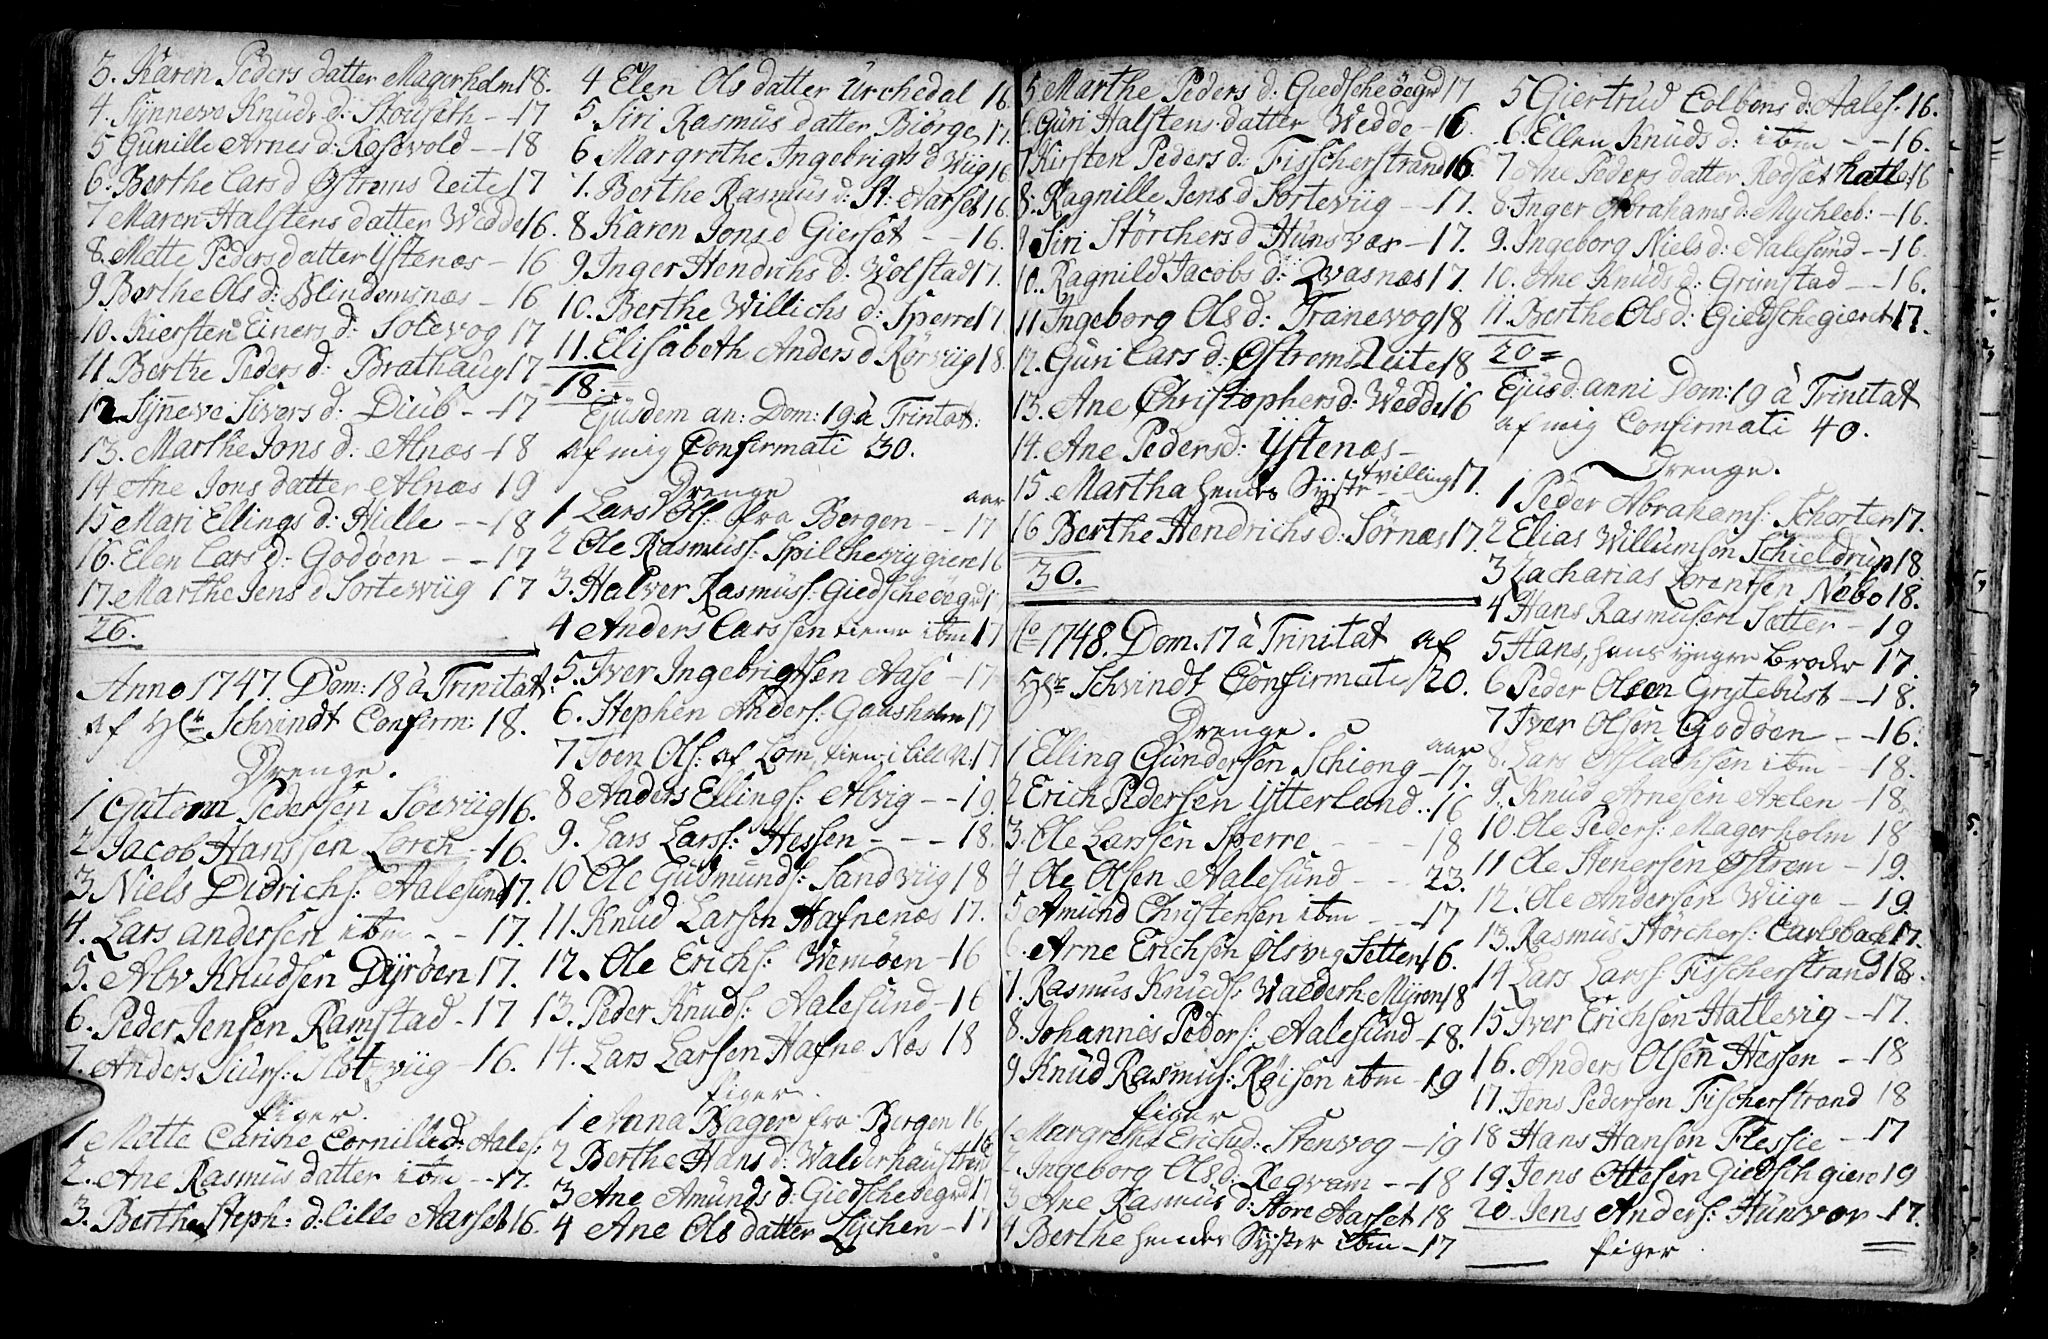 3. Karen Peders datter Magerholm 18.
4. Synneve Knuds d: Stouseth - 17
5 Gunille Arnes d: Rosevold - - 18
6. Berthe Lars d Østrems Leite 17
7 Maren Halstens datter Wedde 16.
8. Mette Peders datter Ystenæs - 16
9 Berthe Ols d: Blindemsnæs - 16
10. Kiersten Einers d: Solevog 17
11 Berthe Peders d: Brathaug 17
12 Synneve Sivers d: Diüb - - 17
13. Marthe Jons d: Alnæs - 18
14 Ane Jons datter Alnæs 19
15 Mari Ellings d: Hille - - 18
16. Elen Lars d: Godøen - - 17
17. Marthe Jens d Sorteviig 17
26.
Anno 1747. Dom: 18 à Trinitat:
af Hr Schvindt Confirm: 18.
Drenge.
1 Guttorm Pedersen Søeviig 16.
2 Jacob Hanssen Lorch - 16.
3 Niels Didrichs: Aalesund 17.
4. Lars andersen ibm - - 17.
5. Alv Knudsen Dyrøen 17.
6. Peder Jensen Ramstad - 17
7. Anders Siurs: Slotviig - 16.
figer.
1 Mette Carishe Cornilled: Aales:
2. Ane Rasmus datter ibm - - 17.
3. Berthe Steph: d: Lille Aarset 16.
4 Elen Ols datter Urchedal 16
5. Siri Rasmus datter Biörge 17.
6 Margrethe Ingebrigts d Wiig 16
7. Berthe Rasmus d: St: Aarset 16.
8 Karen Jons d Gierset - - 16.
9 Inger Hendrichs d: Wolstad 17.
10. Berthe Willichs d: Sperre 17
11. Elisabeth Anders d Rörviig 18.
18.
Ejusdem an: Dom: 19 à Trinitat:
af mig Confirmati 30.
Drenge aar
1 Lars Ols: fra Bergen - - 17
2 Ole Rasmuss: Spilchevig giere 16
3. Halver Rasmuss: Giedsche öegrd 17
4 Anders Larssen tiener ibm 17
5. Iver Ingebrigtsen Aase - 17
6. Stephen Anders: Gaasholm 17
7 Joen Ols: af Lom, tien: i Lille N: 17
8 Anders Ellings: Alvig - - 19.
9. Lars Larss: Hessen - - - 18.
10 Ole Gudmunds: Sandviig 18
11. Knud Larsen Hafnenæs 17.
12. Ole Erichs: Wemøen - 16
13. Peder Knuds: Aalesund - 16
14. Lars Larsen Hafne Næs 18
figer.
1 Anna Bager fra Bergen 16
2 Berthe Hans d: Walderhaustrand 16
3 Ane Amunds d: Giedsche öegrd 17
4 Ane Ols datter Lychen - 17
5 Marthe Peders d: Giedsche öegrd 17
6. Guri Halstens datter Wedde - 16.
7 Kirsten Peders d: Fisscherstrand 16.
8. Ragnille Jens d Sorteviig - - 17.
9 Siri Störchers d Hunsvær - 17.
10. Ragnild Jacobs d: Qvasnæs 17.
11 Ingeborg Ols d: Tranevog 18
12. Guri Lars d: Østrems Leite 18
13. Ane Christophers d: Wedde 16
14. Ane Peders d: Ystenæs -
15. Martha hendes Syster tvilling 17.
16 Berthe Hendrichs d: Sørnæs 17.
30.
Ao 1748. Dom. 17 à Trinitat af
Hr Schvindt Confirmati 20.
Drenge. aar
1 Elling Gundersen Schiong - 17.
2 Erich Pedersen Ytterland .. 16
3. Ole Larssen Sperre - - - - 18
4 Ole Olsen Aalesund - - 23.
5 Amund Christensen ibm - - 17
6. Arne Erichsen Olsvig Setten 16.
7. Rasmus Knuds: Walderh: Myren 18
8. Johannes Peders: Aalesund - 18.
9 Knud Rasmus: Røisen ibm - 19
figer
1. Margrethe Erichsd: Stenvog - 19
2 Ingeborg Ols d: Regvam - - 18
3 Ane Rasmus d: Store Aarset 18
4 Berthe hendes Syster ibm - 17
5 Giertrud Colbens d: Aales: 16.
6. Ellen Knuds d: ibm - - 16.
7 Ane Peders datter Rødset hatle 16
8. Inger Abrahams d: Mychleb: - 16.
9. Ingeborg Niels d: Aalesund - - 16.
10. Ane Knuds d: Grimstad - - 16.
11. Berthe Ols d: Giedsche gieret 17.
20 =
Ejusd: anni Dom: 19 à Trinitat
af mig Confirmati 40.
Drenge.
1 Peder Abrahams: Schorten 17.
2 Elias Willumsen Schieldrup 18
3 Zacharias Lorentsen Nebo 18.
4 Hans Rasmusen Sætter - 19
5 Hans, hans yngre broder 17.
6 Peder Olsen Grytebust - 18.
7 Iver Olsen Godøen - - 16.
8. Lars Aslachsen ibm - - 18.
9. Knud Arnesen Axlen - 18
10. Ole Peders: Magerholm 18
11 Ole Stenersen Østrem - 19.
12. Ole Andersen Wiige - 19.
13. Rasmus Störchers: Carlsbach 17.
14 Lars Larss: Fisscherstrand 18.
15 Iver Erichsen Hatlevig - - 17.
16. Anders Olsen Hessen - - 18
17. Jens Pedersen Fischerstrand 18
18 Hans Hansen Flessie - - 17
19. Jens Ottesen Giedsch giere 19
20 Jens Anders: Hunvær - 17.
figer